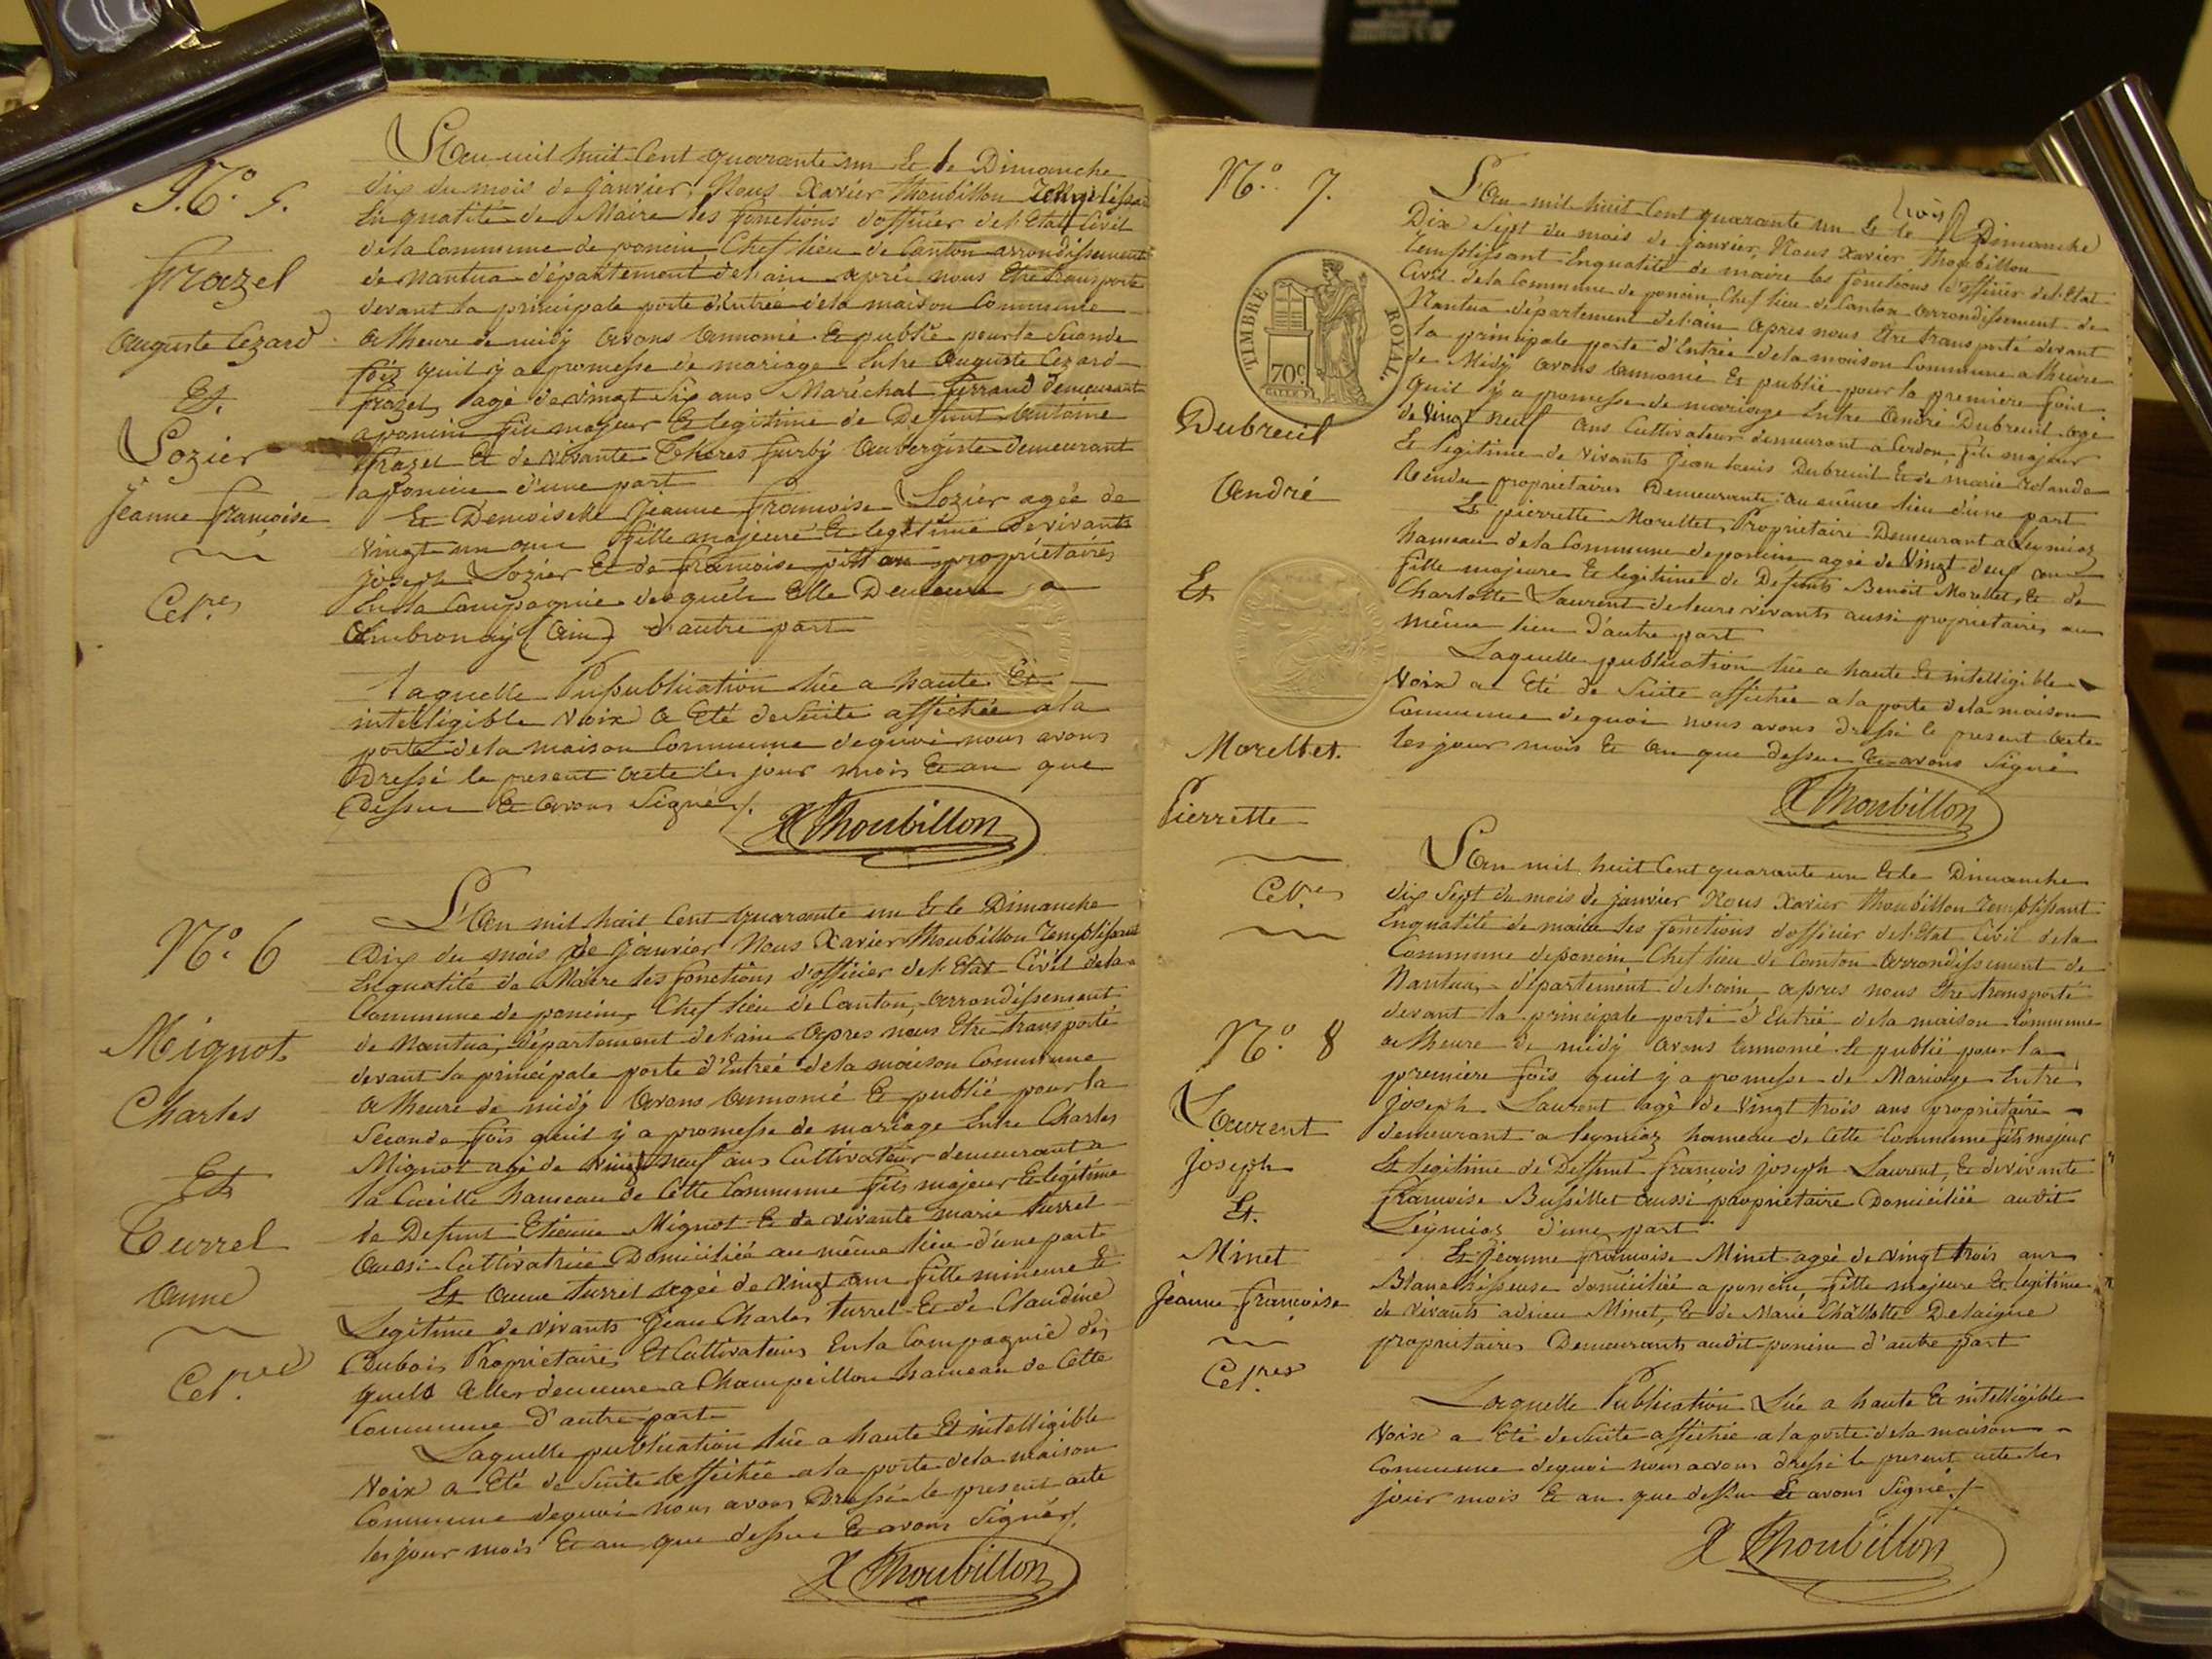 N.o 5.
Frazel
Auguste Cezard
Et.
Lozier
Jeanne françoise
Cel.res
L'An mil huit Cent quarante un Et le Dimanche
dix du mois de janvier, Nous Xavier Thoubillon remplissant
En qualité de Maire les fonctions d'officier de l'Etat Civil
dela Commune de poncin Chef lieu de Canton arrondissement
de Nantua département de l'ain après nous Etre transporté
devant la principale porte d'Entrée dela maison Commune
a lheure de midy avons annoncé Et publié pour la Seconde
fois quil y a promesse de mariage Entre Auguste Cezard
frazel, agé de vingt Six ans Maréchal ferrand demeurant
a poncin fils majeur Et legitime de Defunt Antoine
frazel Et de vivante Theres furby Aubergiste demeurant
a poncin d'une part
Et Demoiselle Jeanne françoise Lozier agée de
vingt un ans fille majeure Et legitime de vivants
joseph Lozier Et de francoise propriétaires
En la Compagnie desquels Elle Demeure a
Ambronay (Ain) d'autre part
Laquelle Publication lüe a haute Et
intelligible voix a Eté de Suite affichée a la
porte dela maison Commune dequoi nous avons
Dressé le present acte les jour mois Et an que
dessus Et avons Signé./.
X Thoubillon
N.o 6
Mignot
Charles
Et
Turrel
Anne
Cel.res
L'An mil huit Cent quarante un Et le Dimanche
Dix du mois de janvier Nous Xavier Thoubillon remplissant
En qualité de Maire les fonctions d'officier de l'Etat Civil dela
Commune de poncin, Chef lieu de Canton, arrondissement
de Nantua, département de l'ain après nous Etre transporté
devant la principale porte d'Entrée dela maison Commune
a lheure de midy avons annoncé Et publié pour la
Seconde fois quil y a promesse de mariage Entre Charles
Mignot agé de vingt neuf ans Cultivateur demeurant a
la Cueille hameau de Cette Commune fils majeur Et legitime
de Defunt Etienne Mignot Et de vivante marie turrel
aussi Cultivatrice Domiciliée au même lieu d'une part
Et Anne turrel agée de vingt ans fille mineure Et
Legitime de vivants Jean Charles turrel Et de Claudine
Dubois Propriétaires Et Cultivateurs En la Compagnie des
quels Elle demeure a Champeillon hameau de Cette
Commune d'autre part
Laquelle publication lüe a haute Et intelligible
Voix a Eté de Suite affichée a la porte dela maison
Commune dequoi nous avons Dressé le present acte
les jour mois Et an que dessus Et avons Signé./.
X Thoubillon
N.o 7.
TIMBRE ROYAL.
70c
Dubreuil
André
Et
Morellet.
Pierrette
Cel.res
L'An mil huit Cent quarante un Et le trois Dimanche
Dix Sept du mois de janvier, Nous Xavier Thoubillon
remplissant En qualité de maire les fonctions d'officier de l'Etat
Civil dela Commune de poncin Chef lieu de Canton arrondissement de
Nantua département de l'ain après nous Etre transporté devant
la principale porte d'Entrée dela maison Commune a lheure
de Midy avons annoncé Et publié pour la première fois
quil y a promesse de mariage Entre André Dubreuil agé
de Vingt neuf ans Cultivateur demeurant a Cerdon fils majeur
Et legitime de vivants Jean Louis Dubreuil Et de marie rolande
propriétaires Demeurants au même lieu d'une part
Et pierrette Morellet, Propriétaire Demeurant a Leymiaz
hameau dela Commune de poncin agée de Vingt deux ans
fille majeure Et legitime de Defunts Benoit Morellet, Et de
Charlotte Laurent de leurs vivants aussi propriétaires au
même lieu d'autre part
Laquelle publication lüe a haute Et intelligible
Voix a Eté de Suite affichée a la porte dela maison
Commune dequoi nous avons dressé le present acte
les jour mois Et an que dessus Et avons Signé
X Thoubillon
N.o 8
Laurent
joseph
Et.
Minet
Jeanne françoise
Cel.res
L'An mil huit Cent quarante un Et le Dimanche
dix Sept du mois de janvier Nous Xavier Thoubillon remplissant
En qualité de maire les fonctions d'officier de l'Etat Civil dela
Commune de poncin Chef lieu de Canton arrondissement de
Nantua, département de l'ain après nous Etre transporté
devant la principale porte d'Entrée dela maison Commune
a lheure de midy avons annoncé Et publié pour la
première fois quil y a promesse de Mariage Entre
Joseph Laurent agé de Vingt trois ans propriétaire
demeurant a leymiaz hameau de Cette Commune fils majeur
Et legitime de Deffunt françois joseph Laurent, Et de vivante
françoise Bussillet aussi propriétaire Domiciliée audit
Leymiaz d'une part
Et Jeanne françoise Minet agée de vingt trois ans
Blanchisseuse domiciliée a poncin, fille majeure Et legitime
de vivants Minet, Et de Marie Charlotte Delaigue
propriétaires Demeurants audit poncin d'autre part
Laquelle Publication Lüe a haute Et intelligible
Voix a Eté de Suite affichée a la porte dela maison
Commune dequoi nous avons dressé le present acte les
jour mois Et an que dessus Et avons Signé./.
X Thoubillon